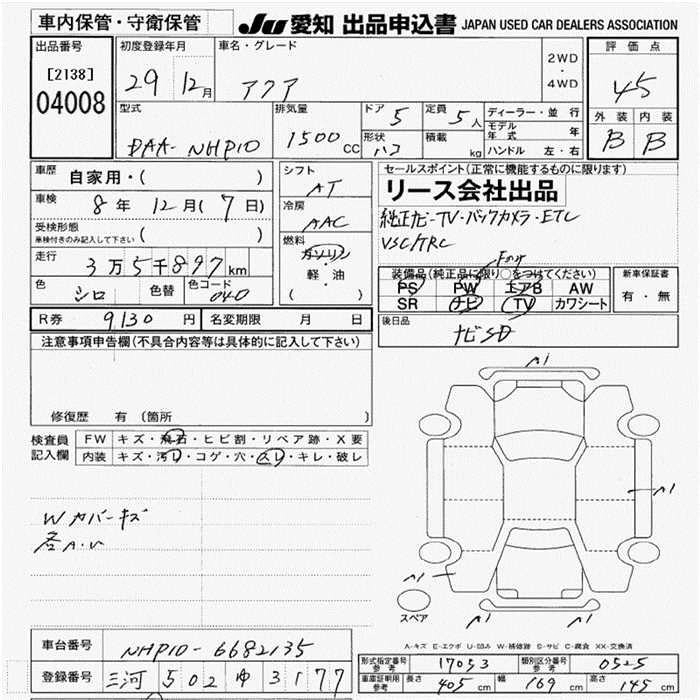 車内保管・守衛保管
JU 愛知 出品申込書 JAPAN USED CAR DEALERS ASSOCIATION
出品番号
[2138]
04008
初度登録年月
29 12月
車名・グレード
アクア
2WD
・
4WD
評価点
45
外装 内装
B B
型式
DAA-NHP10
排気量
1500 CC
ドア 5
形状 ハコ
定員 5人
積載 kg
ディーラー・並行
モデル年式 年
ハンドル 左・右
車歴 自家用・( )
車検 8年 12月(7日)
受検形態
車検付きのみ記入して下さい ( )
走行 3万5千897km
色 シロ 色替 色コード 040
シフト
AT
冷房
AAC
燃料
ガソリン
軽・油
( )
セールスポイント(正常に機能するものに限ります)
リース会社出品
純正ナビ-TV・バックカメラ・ETC
VSC/TRC
装備品(純正品に限り○をつけてください)
PS PW エアB AW
SR ナビ TV カワシート
新車保証書
有・無
R券 9130円 名変期限 月 日
後日品
ナビSD
注意事項申告欄(不具合内容等は具体的に記入して下さい)
修復歴 有(箇所 )
検査員記入欄
FW キズ・飛石・ヒビ割・リペア跡・X要
内装 キズ・汚レ・コゲ・穴・スレ・キレ・破レ
Wカバーキズ
各A.U
A1
A1
A1
A1
A1
スペア
A-キズ E-エクボ U-凹み W-補修跡 S-サビ C-腐食 XX-交換済
車台番号 NHP10-6682135
登録番号 三河 502 ゆ 3177
形式指定番号 参考 17053 類別区分番号 参考 0525
車庫証明用 参考 長さ 405cm 幅 169cm 高さ 145cm